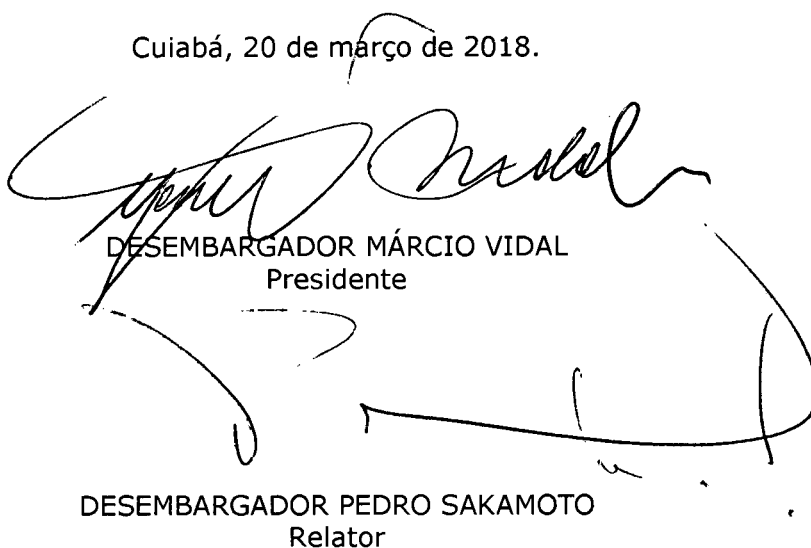 Cuiabá, 20 de março de 2018.
DESEMBARGADOR MÁRCIO VIDAL
Presidente
DESEMBARGADOR PEDRO SAKAMOTO
Relator